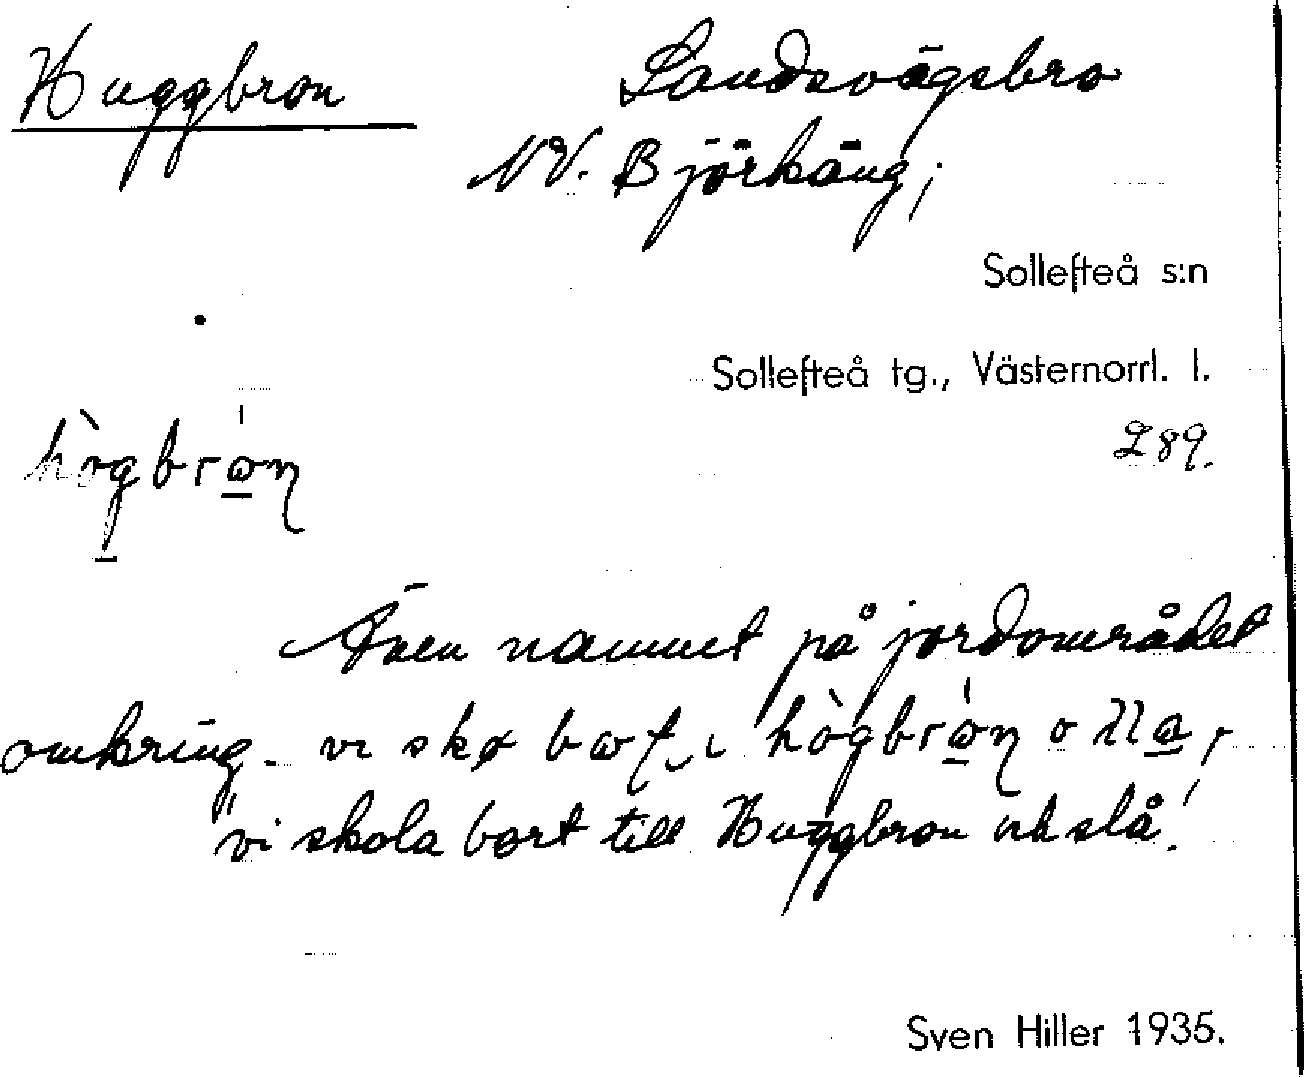 Huggbron
Landsvägsbro
NV. Björkäng;
Sollefteå s:n
Sollefteå tg., Västernorrl. l.
289.
hògbrón
Även namnet på jordområdet
omkring. vi skø bot i hògbrón o lla,
"vi skola bort till Huggbron och slå!"
Sven Hiller 1935.